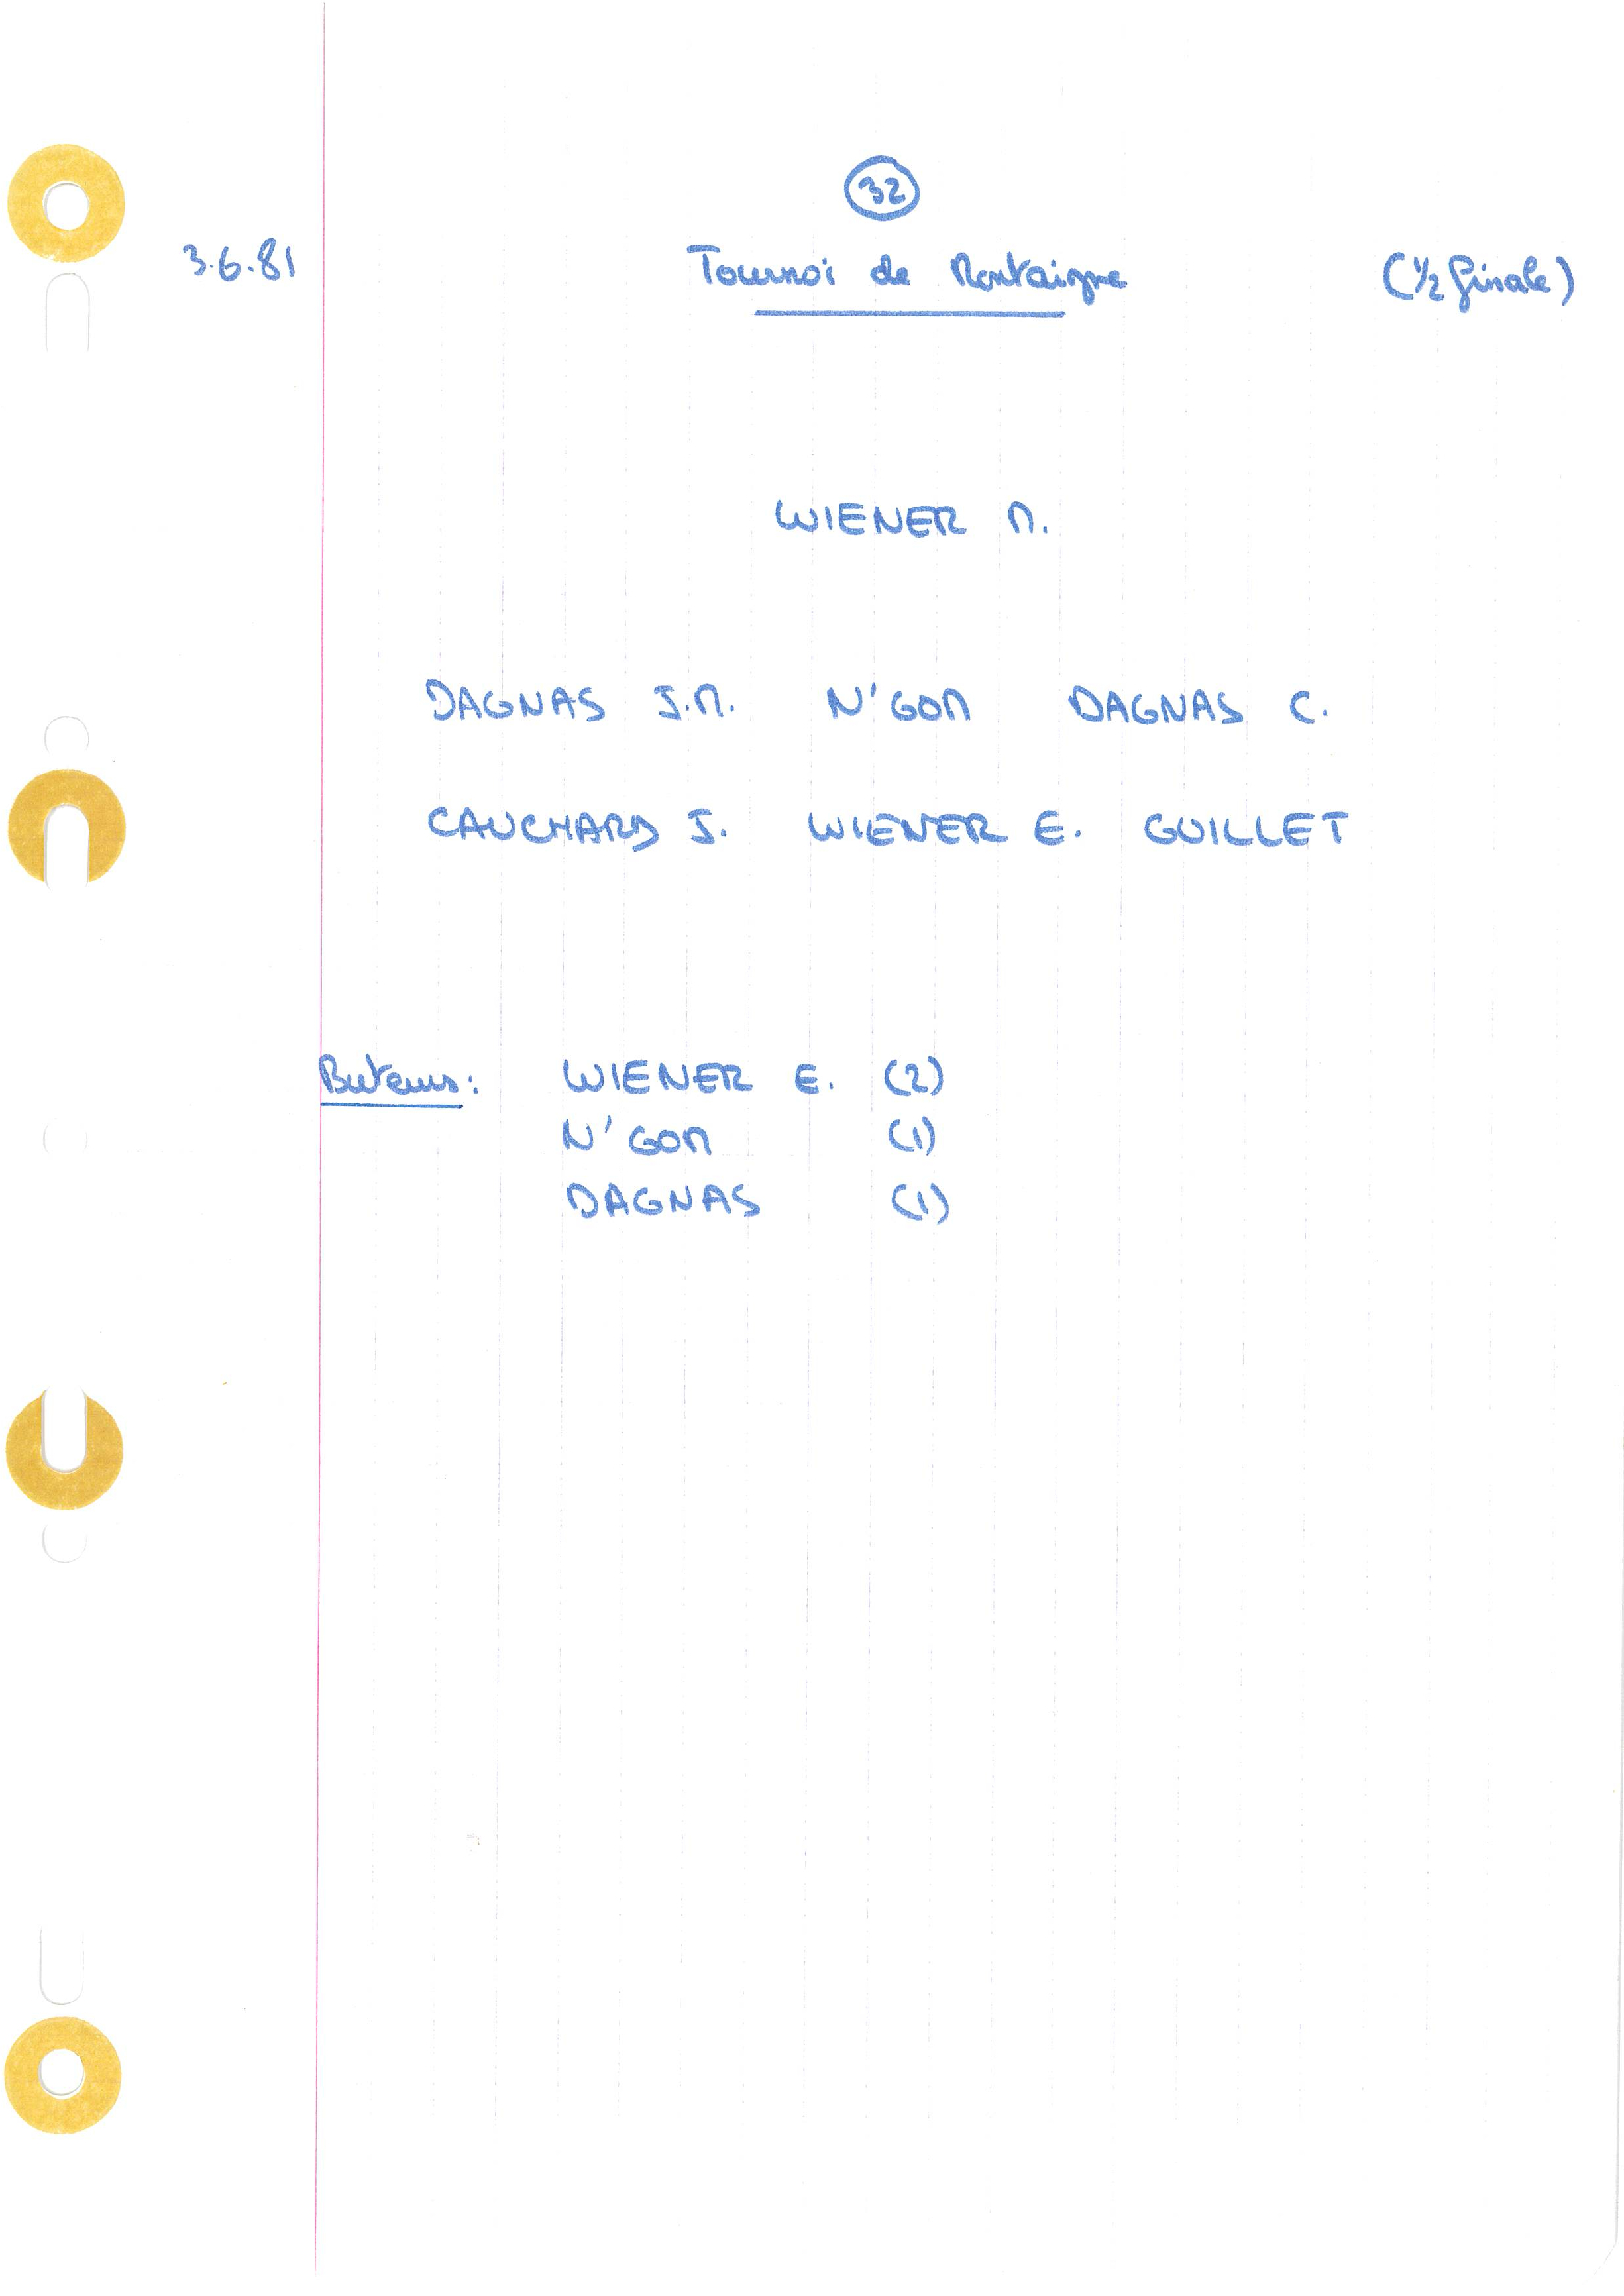 32
3.6.81 Tournoi de Montaigne (1/2 finale)
WIENER M.
DAGNAS J.M. N'GOM DAGNAS C.
CAUCHARD J. WIENER E. GUILLET
Buteurs: WIENER E. (2)
N'GOM (1)
DAGNAS (1)